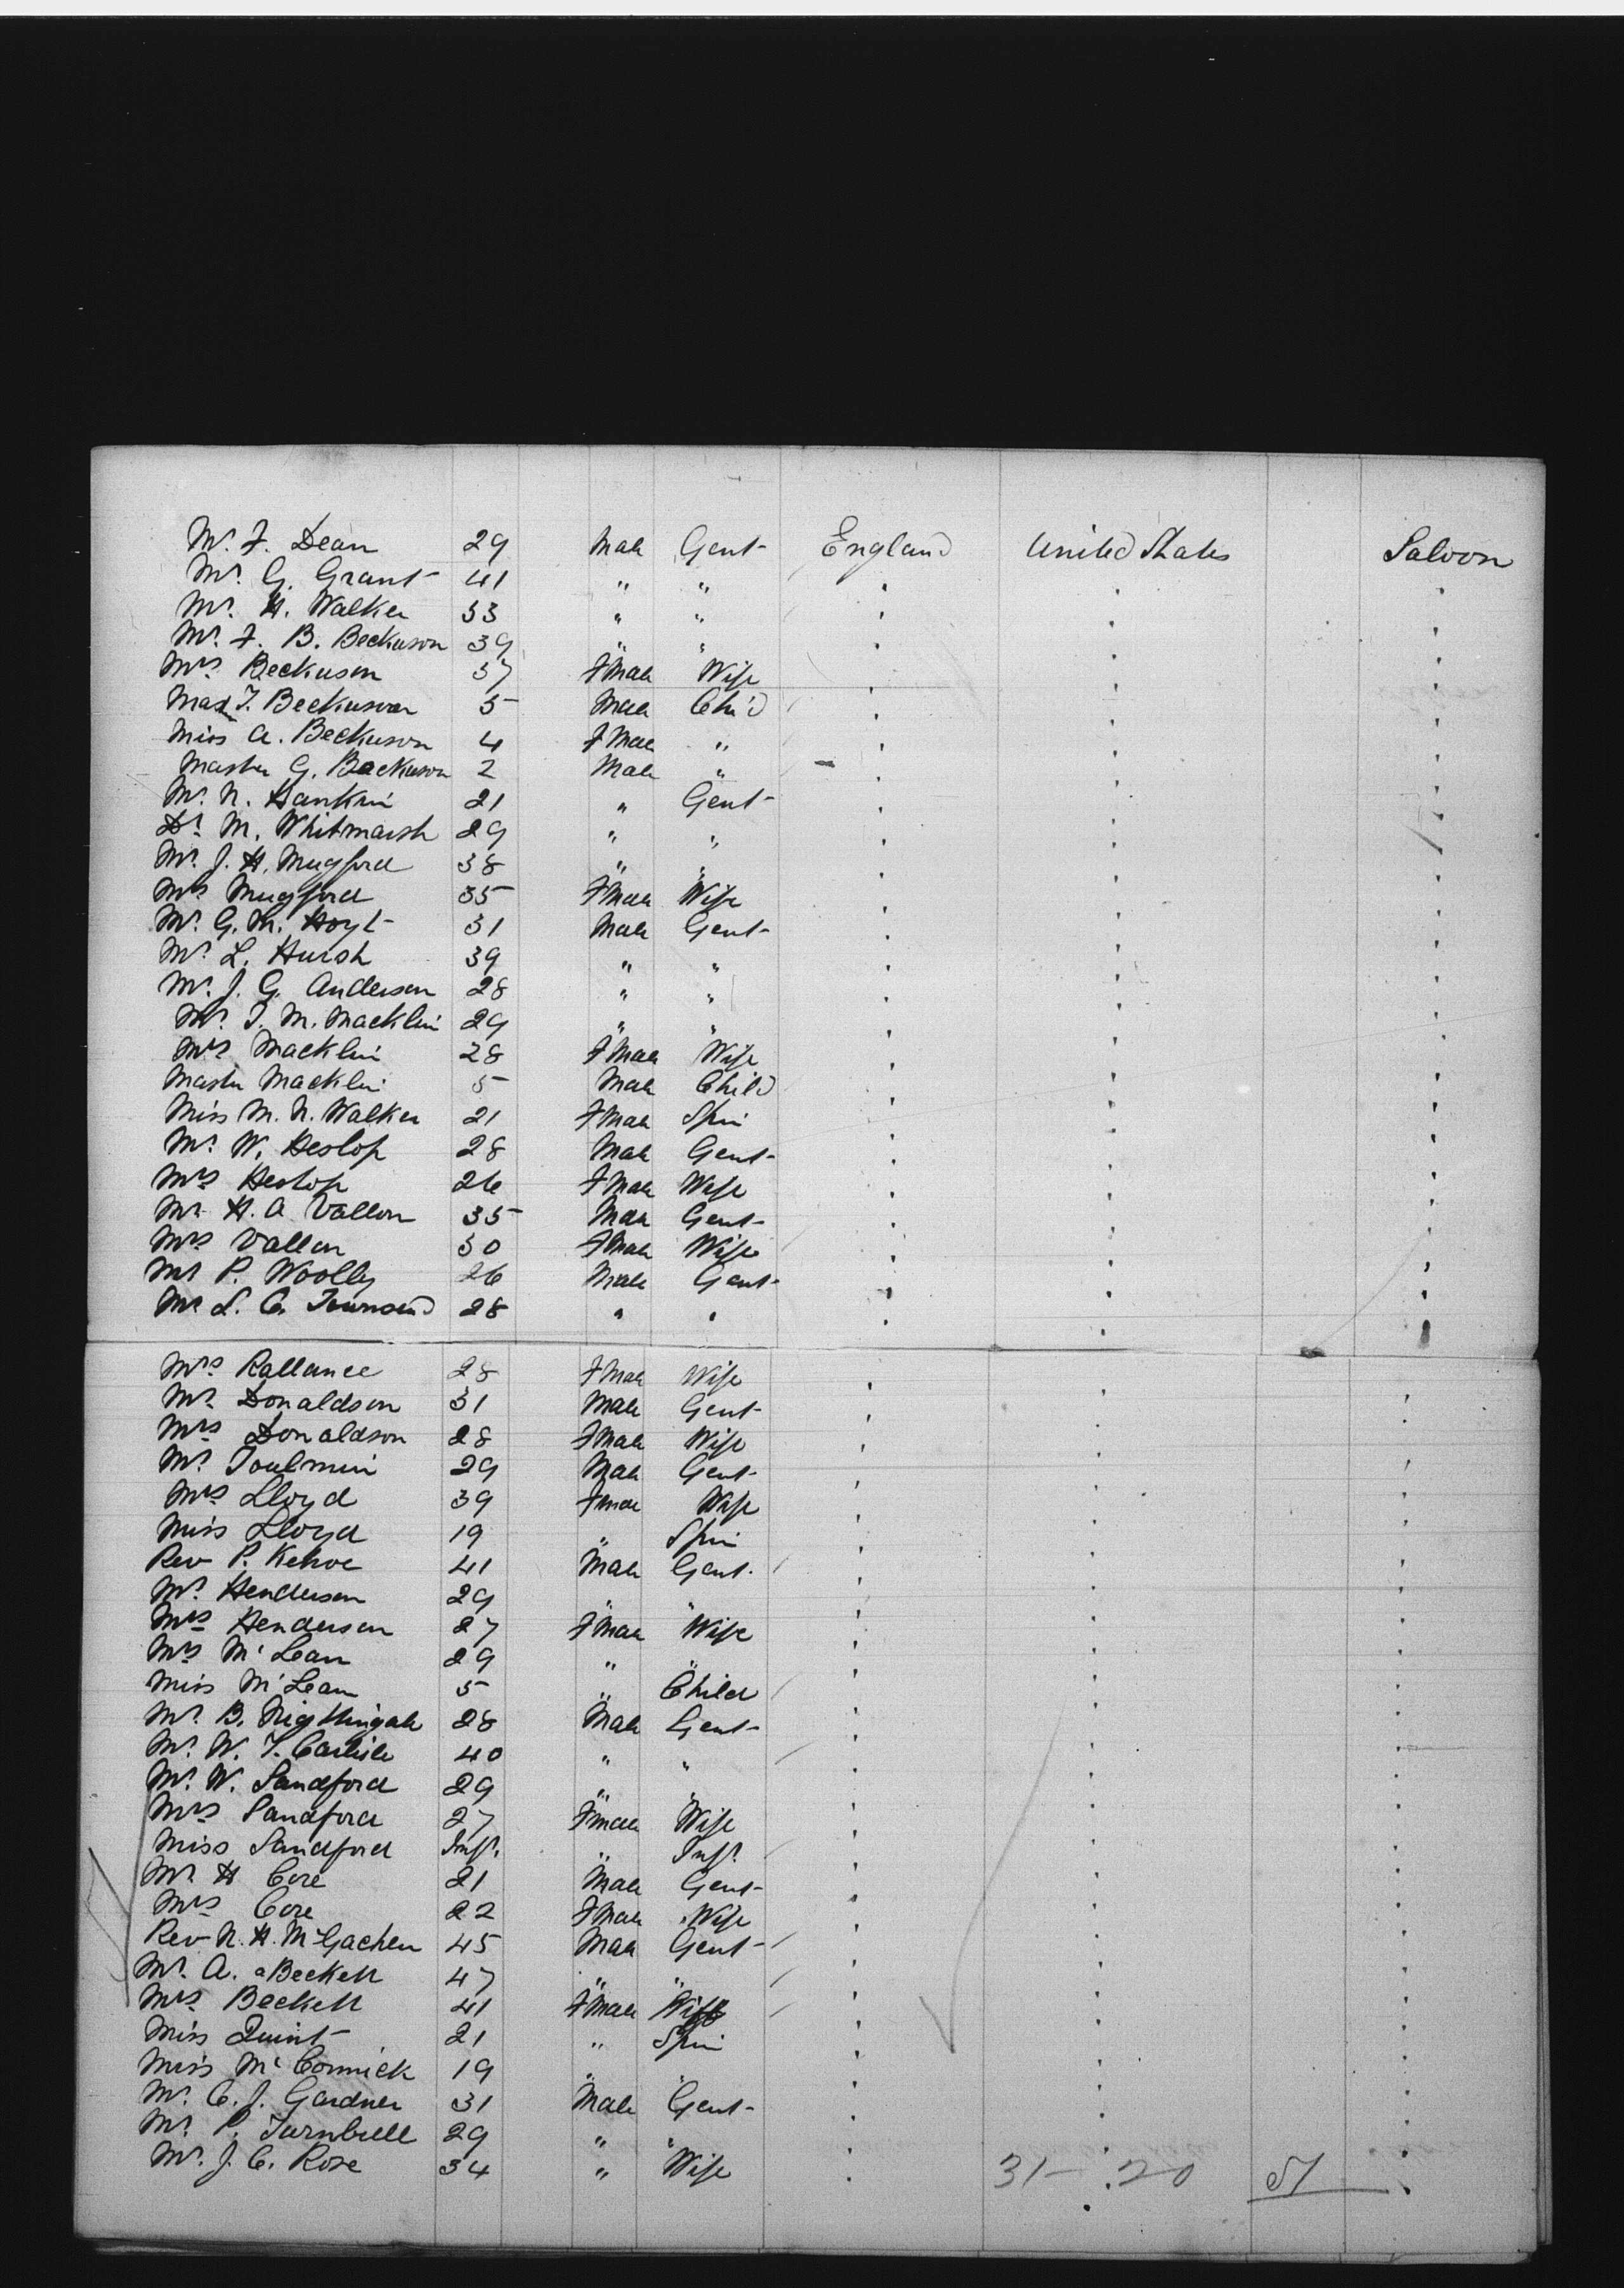 Mr. F. Dean 29 Male Gent England United States Saloon
Mr. G. Grant 41 " " " " "
Mr. H. Walker 33 " " " " "
Mr. F. B. Beckuson 39 " " " " "
Mrs Beckuson 37 Fmale Wife " " "
Mas T. Beckuson 5 Male Chi'd " " "
Miss A. Beckuson 4 Fmale " " " "
Master G. Beckuson 2 Male " " " "
Mr. N. Hankin 21 " Gent " " "
Dr M. Whitmarsh 29 " " " " "
Mr. J. H. Mugford 38 " " " " "
Mrs Mugford 35 Fmale Wife " " "
Mr. G. M. Hoyt 31 Male Gent " " "
Mr L. Hursh 39 " " " " "
Mr. J. G. Anderson 28 " " " " "
Mr. T. M. Macklin 29 " " " " "
Mrs Macklin 28 Fmale Wife " " "
Master Macklin 5 Male Child " " "
Miss M. N. Walker 21 Fmale Spin " " "
Mr. W. Heslop 28 Male Gent " " "
Mrs Heslop 26 Fmale Wife " " "
Mr H. A Vallon 35 Male Gent " " "
Mrs Vallon 30 Fmale Wife " " "
Mr P. Woolly 26 Male Gent " " "
Mr L. C. Townsend 28 " " " " "
Mrs Rallance 28 Fmale Wife " " "
Mr. Donaldson 31 Male Gent " " "
Mrs Donaldson 28 Fmale Wife " " "
Mr. Toulmin 29 Male Gent " " "
Mrs Lloyd 39 Fmale Wife " " "
Miss Lloyd 19 " Spin " " "
Rev P. Kehoe 41 Male Gent. " " "
Mr. Henderson 29 " " " " "
Mrs Henderson 27 Fmale Wife " " "
Mrs McLean 29 " " " " "
Miss McLean 5 " Child " " "
Mr. B. Nigthingale 28 Male Gent " " "
Mr. W. T. Carlisle 40 " " " " "
Mr. W. Sandford 29 " " " " "
Mrs Sandford 27 Fmale Wife " " "
Miss Sandford Inft. " Inft. " " "
Mr. H Core 21 Male Gent " " "
Mrs Core 22 Fmale Wife " " "
Rev N. H. McGachen 45 Male Gent " " "
Mr. A. a Beckett 47 " " " " "
Mrs Beckett 41 Fmale Wife " " "
Miss Quint 21 " Spin " " "
Miss McCormick 19 " " " " "
Mr. C. J. Gardner 31 Male Gent " " "
Mr. P. Turnbull 29 " " " " "
Mr. J. C. Rose 34 " Wife " " "
31 - 20 51